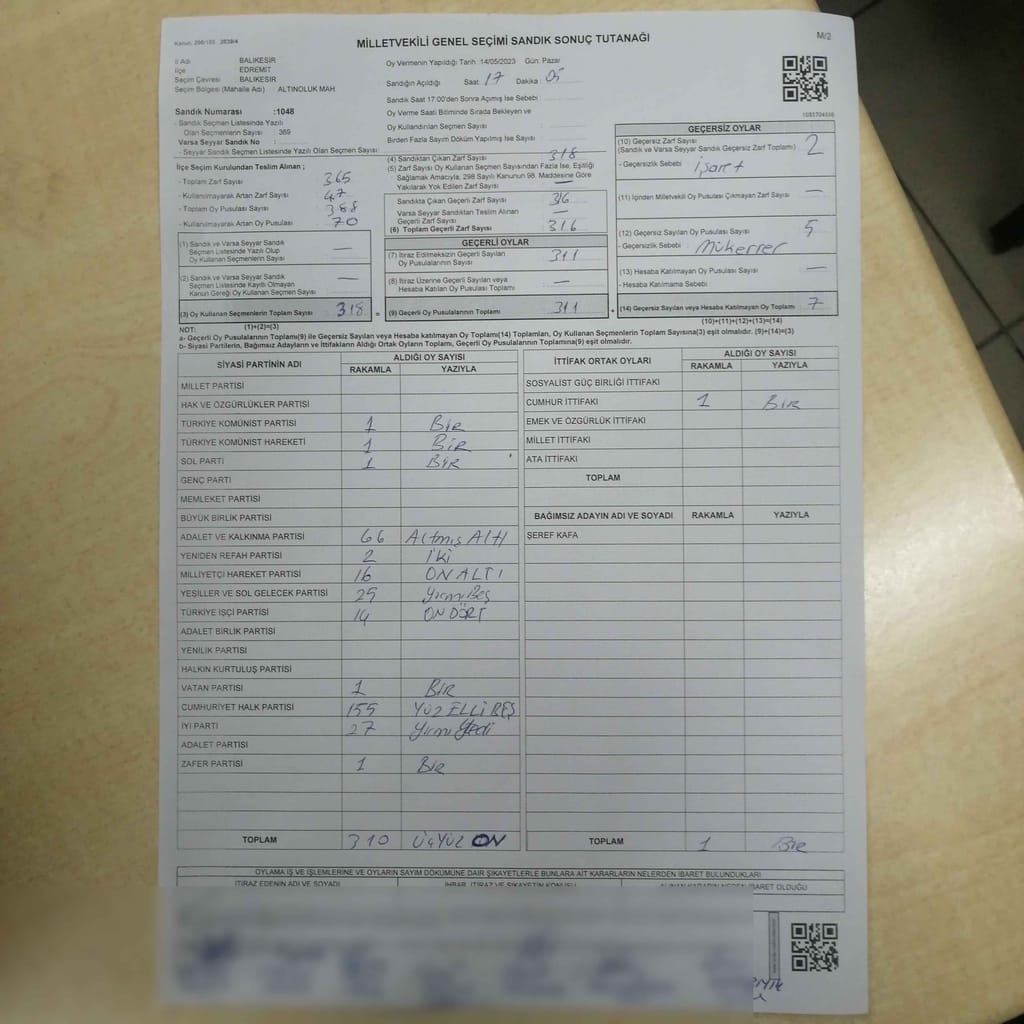 MİLLETVEKİLİ GENEL SEÇİMİ SANDIK SONUÇ TUTANAĞI
M/2
İl Adı BALIKESİR
İlçe EDREMİT
Seçim Çevresi BALIKESİR
Seçim Bölgesi (Mahalle Adı) ALTINOLUK MAH
Oy Vermenin Yapıldığı Tarih :14/05/2023 Gün: Pazar
Sandığın Açıldığı Saat: 17 Dakika: 05
Sandık Saat 17:00'den Sonra Açılmış İse Sebebi :
Oy Verme Saati Bitiminde Sırada Bekleyen ve
Oy Kullandırılan Seçmen Sayısı :
Birden Fazla Sayım Döküm Yapılmış İse Sayısı :
Sandık Numarası :1048
- Sandık Seçmen Listesinde Yazılı
Olan Seçmenlerin Sayısı : 369
Varsa Seyyar Sandık No :
- Seyyar Sandık Seçmen Listesinde Yazılı Olan Seçmen Sayısı :
İlçe Seçim Kurulundan Teslim Alınan ;
- Toplam Zarf Sayısı 365
- Kullanılmayarak Artan Zarf Sayısı 47
- Toplam Oy Pusulası Sayısı 388
- Kullanılmayarak Artan Oy Pusulası 70
(1) Sandık ve Varsa Seyyar Sandık
Seçmen Listesinde Yazılı Olup
Oy Kullanan Seçmenlerin Sayısı —
(2) Sandık ve Varsa Seyyar Sandık
Seçmen Listesinde Kayıtlı Olmayan
Kanun Gereği Oy Kullanan Seçmen Sayısı —
(3) Oy Kullanan Seçmenlerin Toplam Sayısı 318 =
(1)+(2)=(3)
(4) Sandıktan Çıkan Zarf Sayısı 318
(5) Zarf Sayısı Oy Kullanan Seçmen Sayısından Fazla İse, Eşitliği
Sağlamak Amacıyla; 298 Sayılı Kanunun 98. Maddesine Göre
Yakılarak Yok Edilen Zarf Sayısı —
Sandıkta Çıkan Geçerli Zarf Sayısı 316
Varsa Seyyar Sandıktan Teslim Alınan
Geçerli Zarf Sayısı —
(6) Toplam Geçerli Zarf Sayısı 316
GEÇERLİ OYLAR
(7) İtiraz Edilmeksizin Geçerli Sayılan
Oy Pusulalarının Sayısı 311
(8) İtiraz Üzerine Geçerli Sayılan veya
Hesaba Katılan Oy Pusulası Toplamı —
(9) Geçerli Oy Pusulalarının Toplamı 311 +
GEÇERSİZ OYLAR
(10) Geçersiz Zarf Sayısı
(Sandık ve Varsa Seyyar Sandık Geçersiz Zarf Toplamı) 2
- Geçersizlik Sebebi işaret
(11) İçinden Milletvekili Oy Pusulası Çıkmayan Zarf Sayısı —
(12) Geçersiz Sayılan Oy Pusulası Sayısı 5
- Geçersizlik Sebebi Mükerrer
(13) Hesaba Katılmayan Oy Pusulası Sayısı —
- Hesaba Katılmama Sebebi
(14) Geçersiz Sayılan veya Hesaba Katılmayan Oy Toplamı 7
(10)+(11)+(12)+(13)=(14)
NOT:
a- Geçerli Oy Pusulalarının Toplamı(9) ile Geçersiz Sayılan veya Hesaba katılmayan Oy Toplamı(14) Toplamları, Oy Kullanan Seçmenlerin Toplam Sayısına(3) eşit olmalıdır. (9)+(14)=(3)
b- Siyasi Partilerin, Bağımsız Adayların ve İttifakların Aldığı Ortak Oyların Toplamı, Geçerli Oy Pusulalarının Toplamına(9) eşit olmalıdır.
SİYASİ PARTİNİN ADI ALDIĞI OY SAYISI
RAKAMLA YAZIYLA
MİLLET PARTİSİ
HAK VE ÖZGÜRLÜKLER PARTİSİ
TÜRKİYE KOMÜNİST PARTİSİ 1 Bir
TÜRKİYE KOMÜNİST HAREKETİ 1 Bir
SOL PARTİ 1 Bir
GENÇ PARTİ
MEMLEKET PARTİSİ
BÜYÜK BİRLİK PARTİSİ
ADALET VE KALKINMA PARTİSİ 66 Altmış Altı
YENİDEN REFAH PARTİSİ 2 iki
MİLLİYETÇİ HAREKET PARTİSİ 16 ON ALTI
YEŞİLLER VE SOL GELECEK PARTİSİ 25 YirmiBeş
TÜRKİYE İŞÇİ PARTİSİ 14 ON DÖRT
ADALET BİRLİK PARTİSİ
YENİLİK PARTİSİ
HALKIN KURTULUŞ PARTİSİ
VATAN PARTİSİ 1 Bir
CUMHURİYET HALK PARTİSİ 155 YÜZ ELLİ BEŞ
İYİ PARTİ 27 Yirmi Yedi
ADALET PARTİSİ
ZAFER PARTİSİ 1 Bir
TOPLAM 310 ÜÇYÜZ ON
İTTİFAK ORTAK OYLARI ALDIĞI OY SAYISI
RAKAMLA YAZIYLA
SOSYALİST GÜÇ BİRLİĞİ İTTİFAKI
CUMHUR İTTİFAKI 1 Bir
EMEK VE ÖZGÜRLÜK İTTİFAKI
MİLLET İTTİFAKI
ATA İTTİFAKI
TOPLAM
BAĞIMSIZ ADAYIN ADI VE SOYADI RAKAMLA YAZIYLA
ŞEREF KAFA
TOPLAM 1 Bir
OYLAMA İŞ VE İŞLEMLERİNE VE OYLARIN SAYIM DÖKÜMÜNE DAİR ŞİKAYETLERLE BUNLARA AİT KARARLARIN NELERDEN İBARET BULUNDUKLARI
İTİRAZ EDENİN ADI VE SOYADI İHBAR, İTİRAZ VE ŞİKAYETİN KONUSU ALINAN KARARIN NEDEN İBARET OLDUĞU